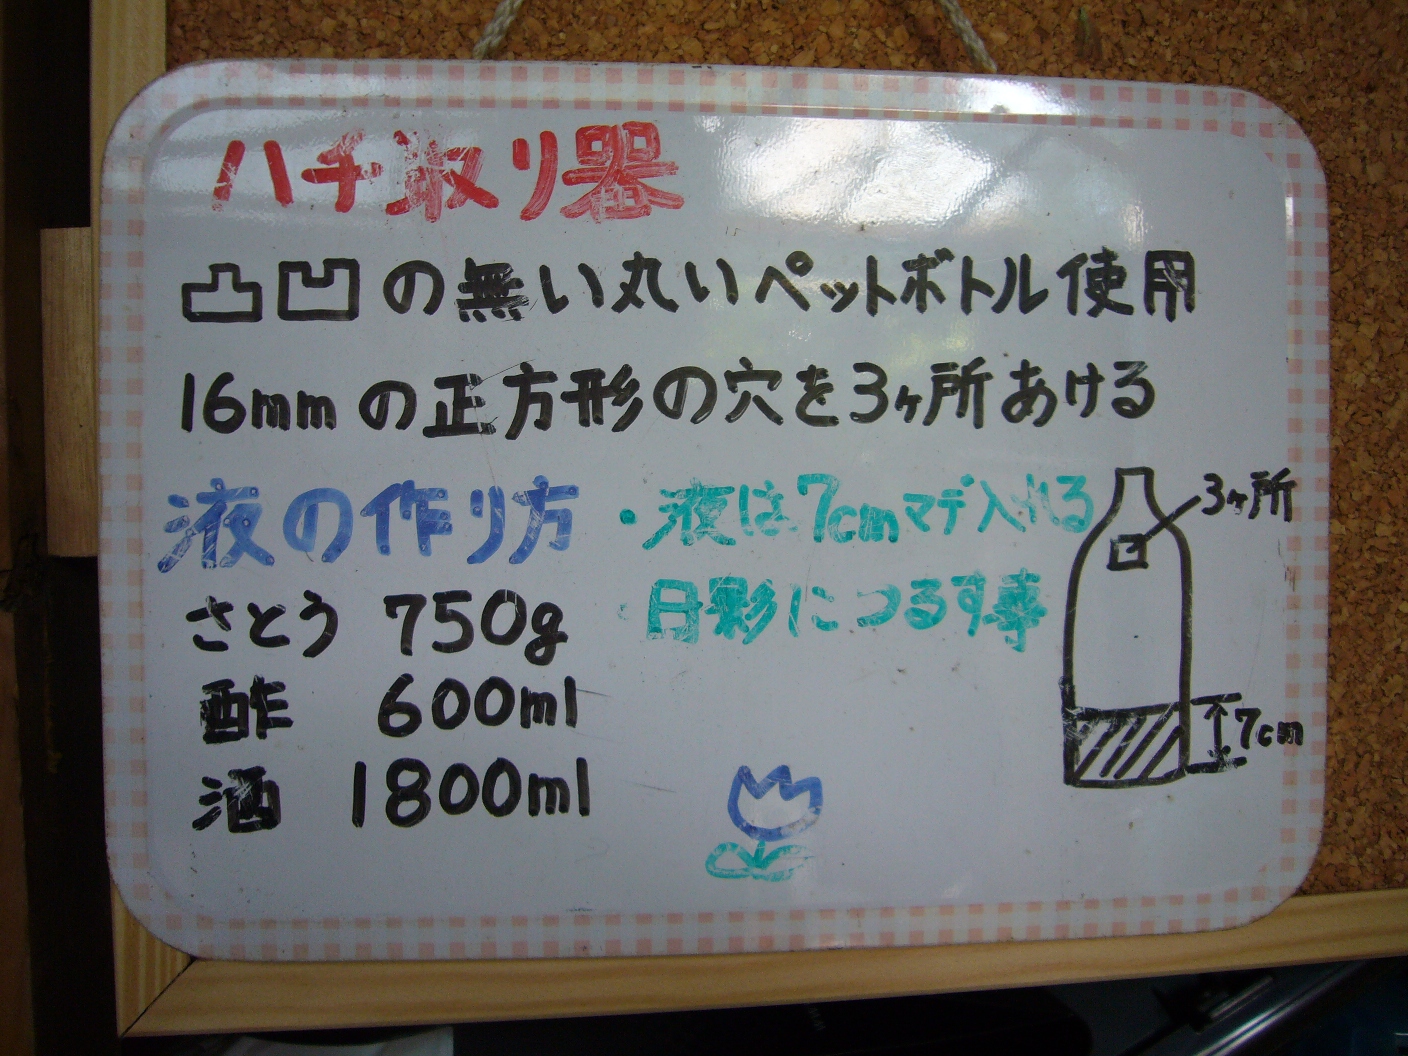 ハチ取り器
凸凹の無い丸いペットボトル使用
16mmの正方形の穴を3ヶ所あける
液の作り方
さとう 750g
酢 600ml
酒 1800ml
・液は7cmマデ入れる
・日影につるす事
3ヶ所
7cm